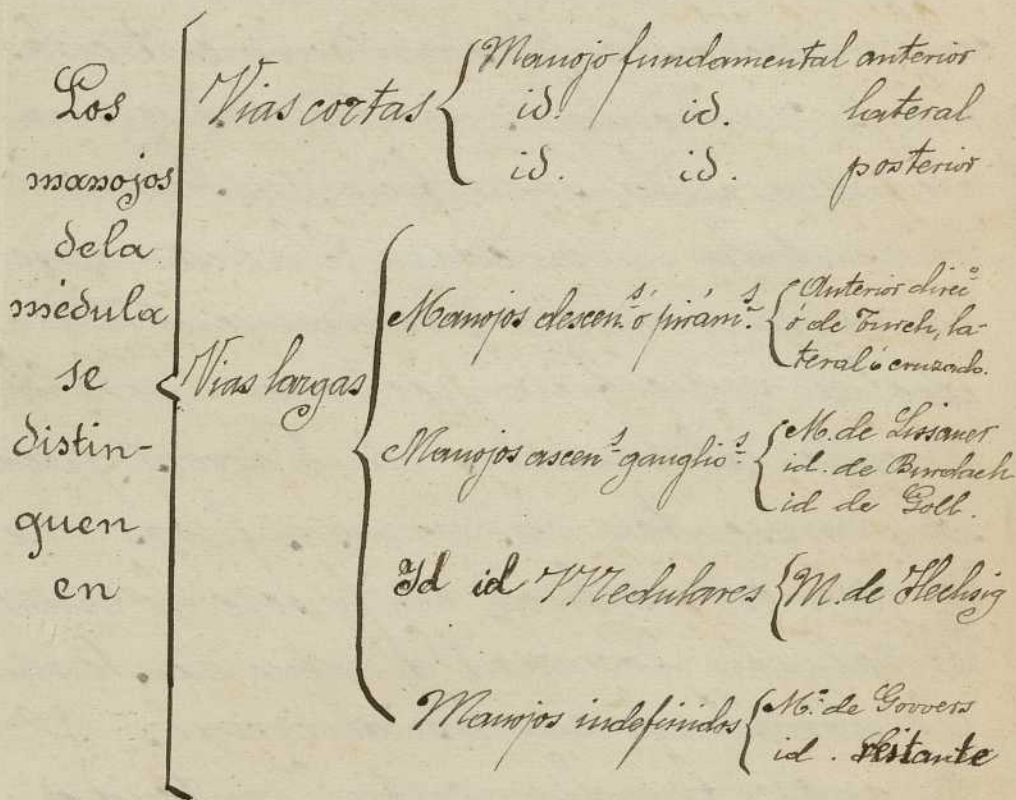 Los
manojos
dela
médula
se
distin-
guen
en
Vias cortas
Manojo fundamental anterior
id. id. lateral
id. id. posterior
Vias largas
Manojos descen.s ó pirám.s
Anterior direc.o
ó de Turch, la-
teral ó cruzado.
Manojos ascen.s ganglio.s
M. de Lissauer
id. de Burdach
id de Goll.
Id id Medulares
M. de Flechsig
Manojos indefinidos
M.o de Govvers
id. restante